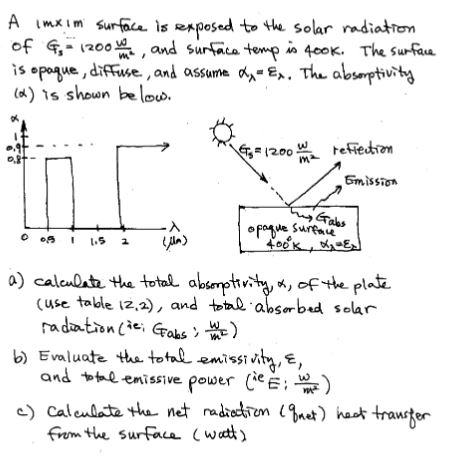 A 1mx1m surface is exposed to the solar radiation
of Gs = 1200 w/m², and surface temp is 400K. The surface
is opaque, diffuse, and assume αλ = Eλ. The absorptivity
(α) is shown below.
α
1
0.9
0.8
0 0.5 1 1.5 2 λ (μm)
Gs = 1200 w/m² reflection
Emission
Gabs
opaque surface
400°K, αλ=Eλ
a) calculate the total absorptivity, α, of the plate
(use table 12.2), and total absorbed solar
radiation (ie; Gabs ; w/m²)
b) Evaluate the total emissivity, ε,
and total emissive power (ie E; w/m²)
c) Calculate the net radiation (qnet) heat transfer
from the surface (watt)